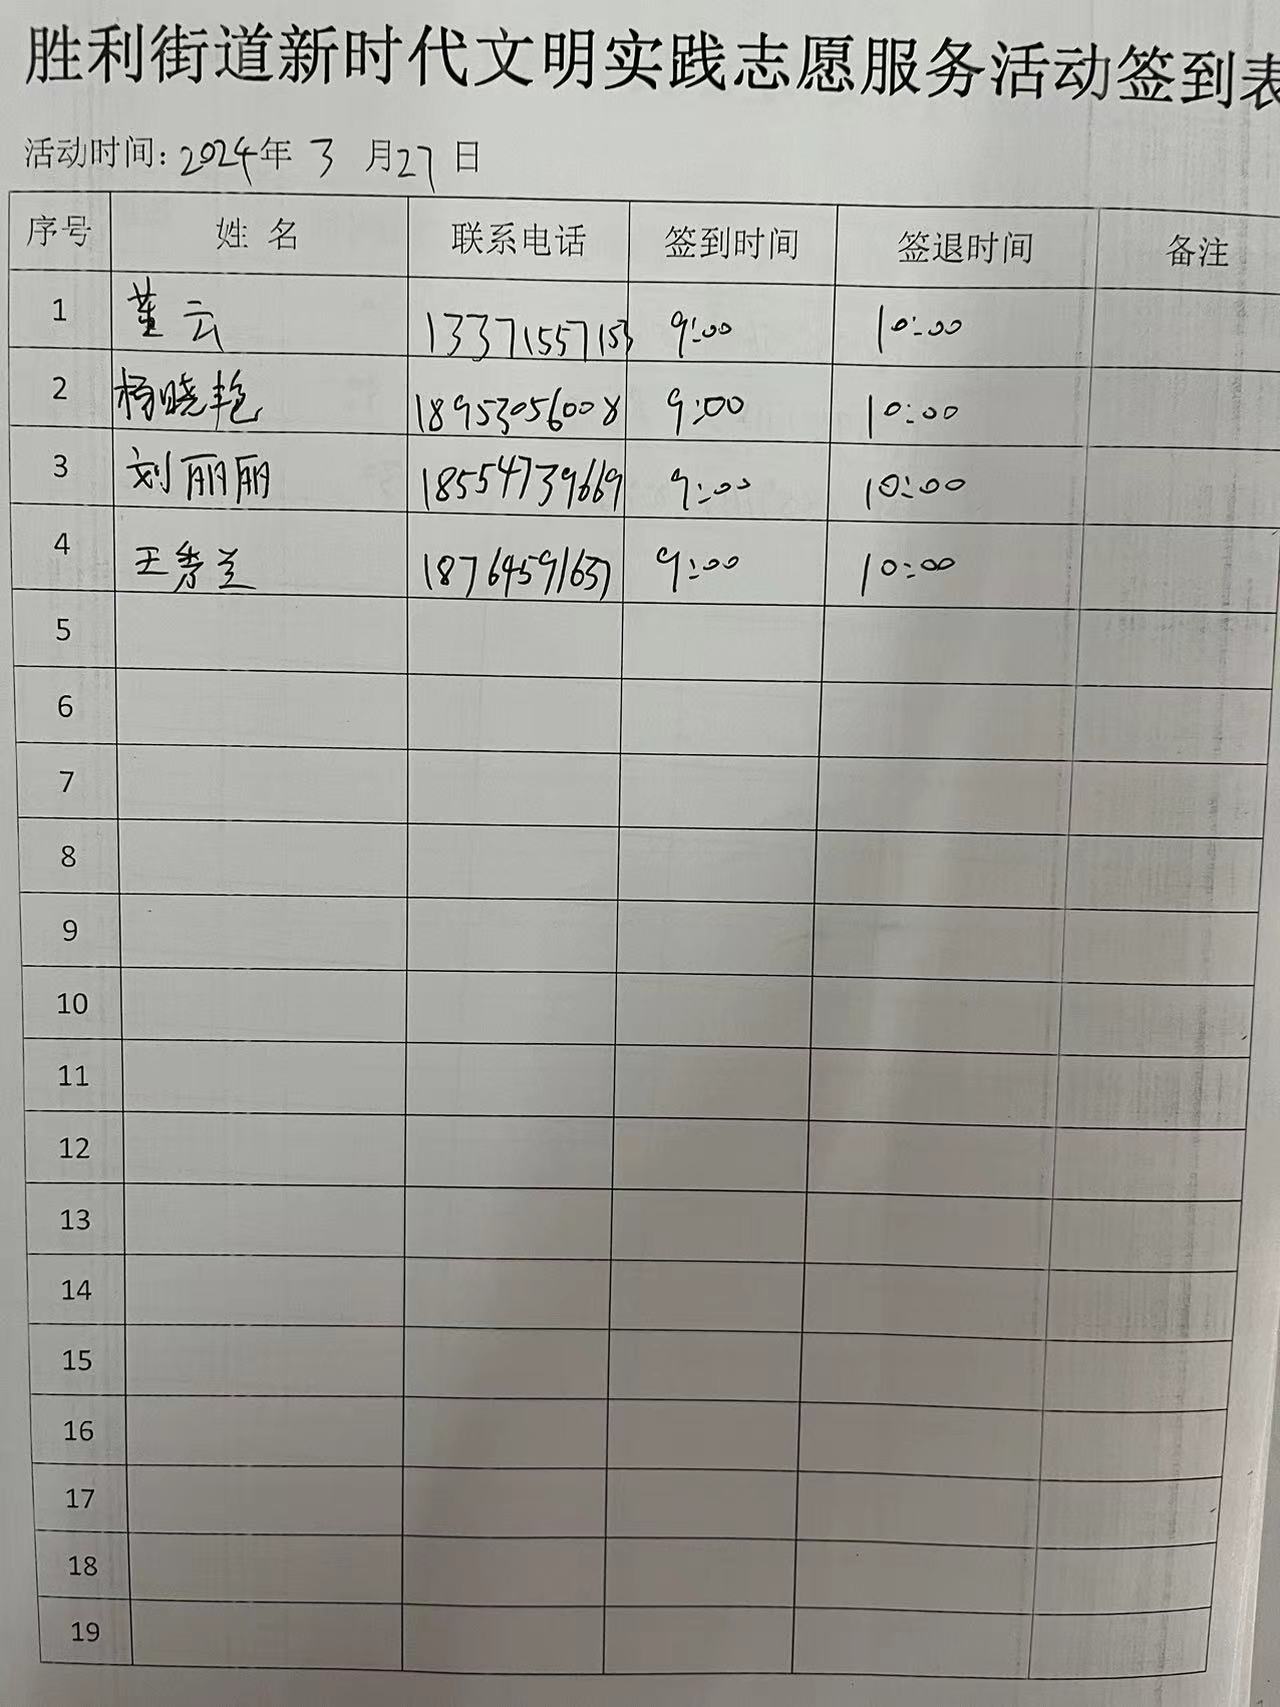 胜利街道新时代文明实践志愿服务活动签到表
活动时间：2024年 3 月27日
序号 姓 名 联系电话 签到时间 签退时间 备注
1 董云 13371557153 9:00 10:00
2 杨晓艳 18953056008 9:00 10:00
3 刘丽丽 18554739669 9:00 10:00
4 王秀兰 18764591637 9:00 10:00
5
6
7
8
9
10
11
12
13
14
15
16
17
18
19